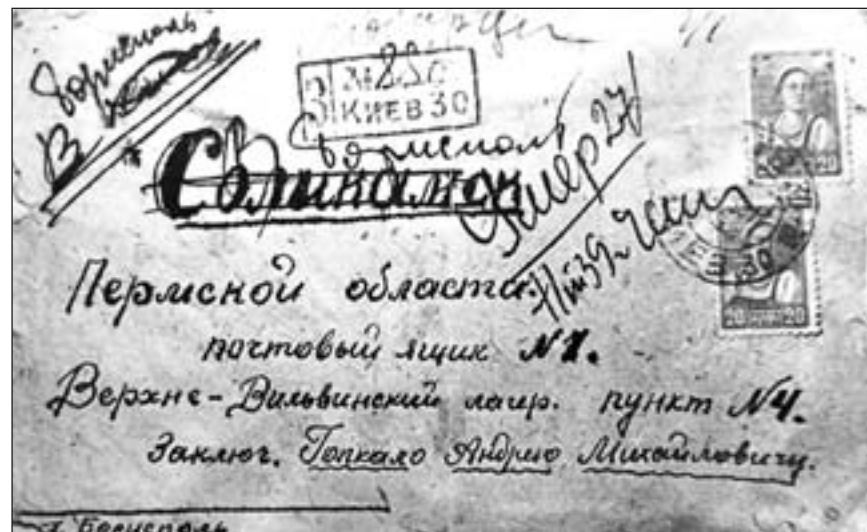 В Борисполь
З № 880
КИЕВ 30
В Борисполь
Соликамск
Умер 27/
III 39 г.
Пермской области.
почтовый ящик № 1.
Верхне-Вильвинский лагер. пункт № 4.
Заключ. Гопкало Андрею Михайловичу.
г. Борисполь
20 20
КИЕВ 30
20 20